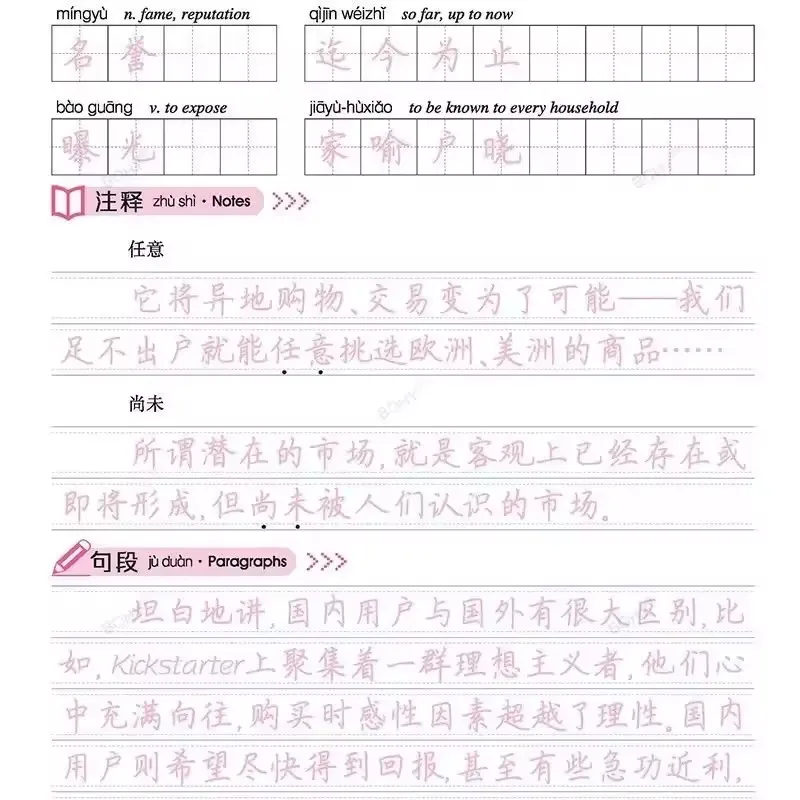 míngyù n. fame, reputation
qìjīn wéizhǐ so far, up to now
名誉
迄今为止
bào guāng v. to expose
jiāyù-hùxiǎo to be known to every household
曝光
家喻户晓
注释 zhù shì · Notes
任意
它将异地购物、交易变为了可能——我们
足不出户就能任意挑选欧洲、美洲的商品……
尚未
所谓潜在的市场,就是客观上已经存在或
即将形成,但尚未被人们认识的市场。
句段 jù duàn · Paragraphs
坦白地讲,国内用户与国外有很大区别,比
如,Kickstarter上聚集着一群理想主义者,他们心
中充满向往,购买时感性因素超越了理性。国内
用户则希望尽快得到回报,甚至有些急功近利,